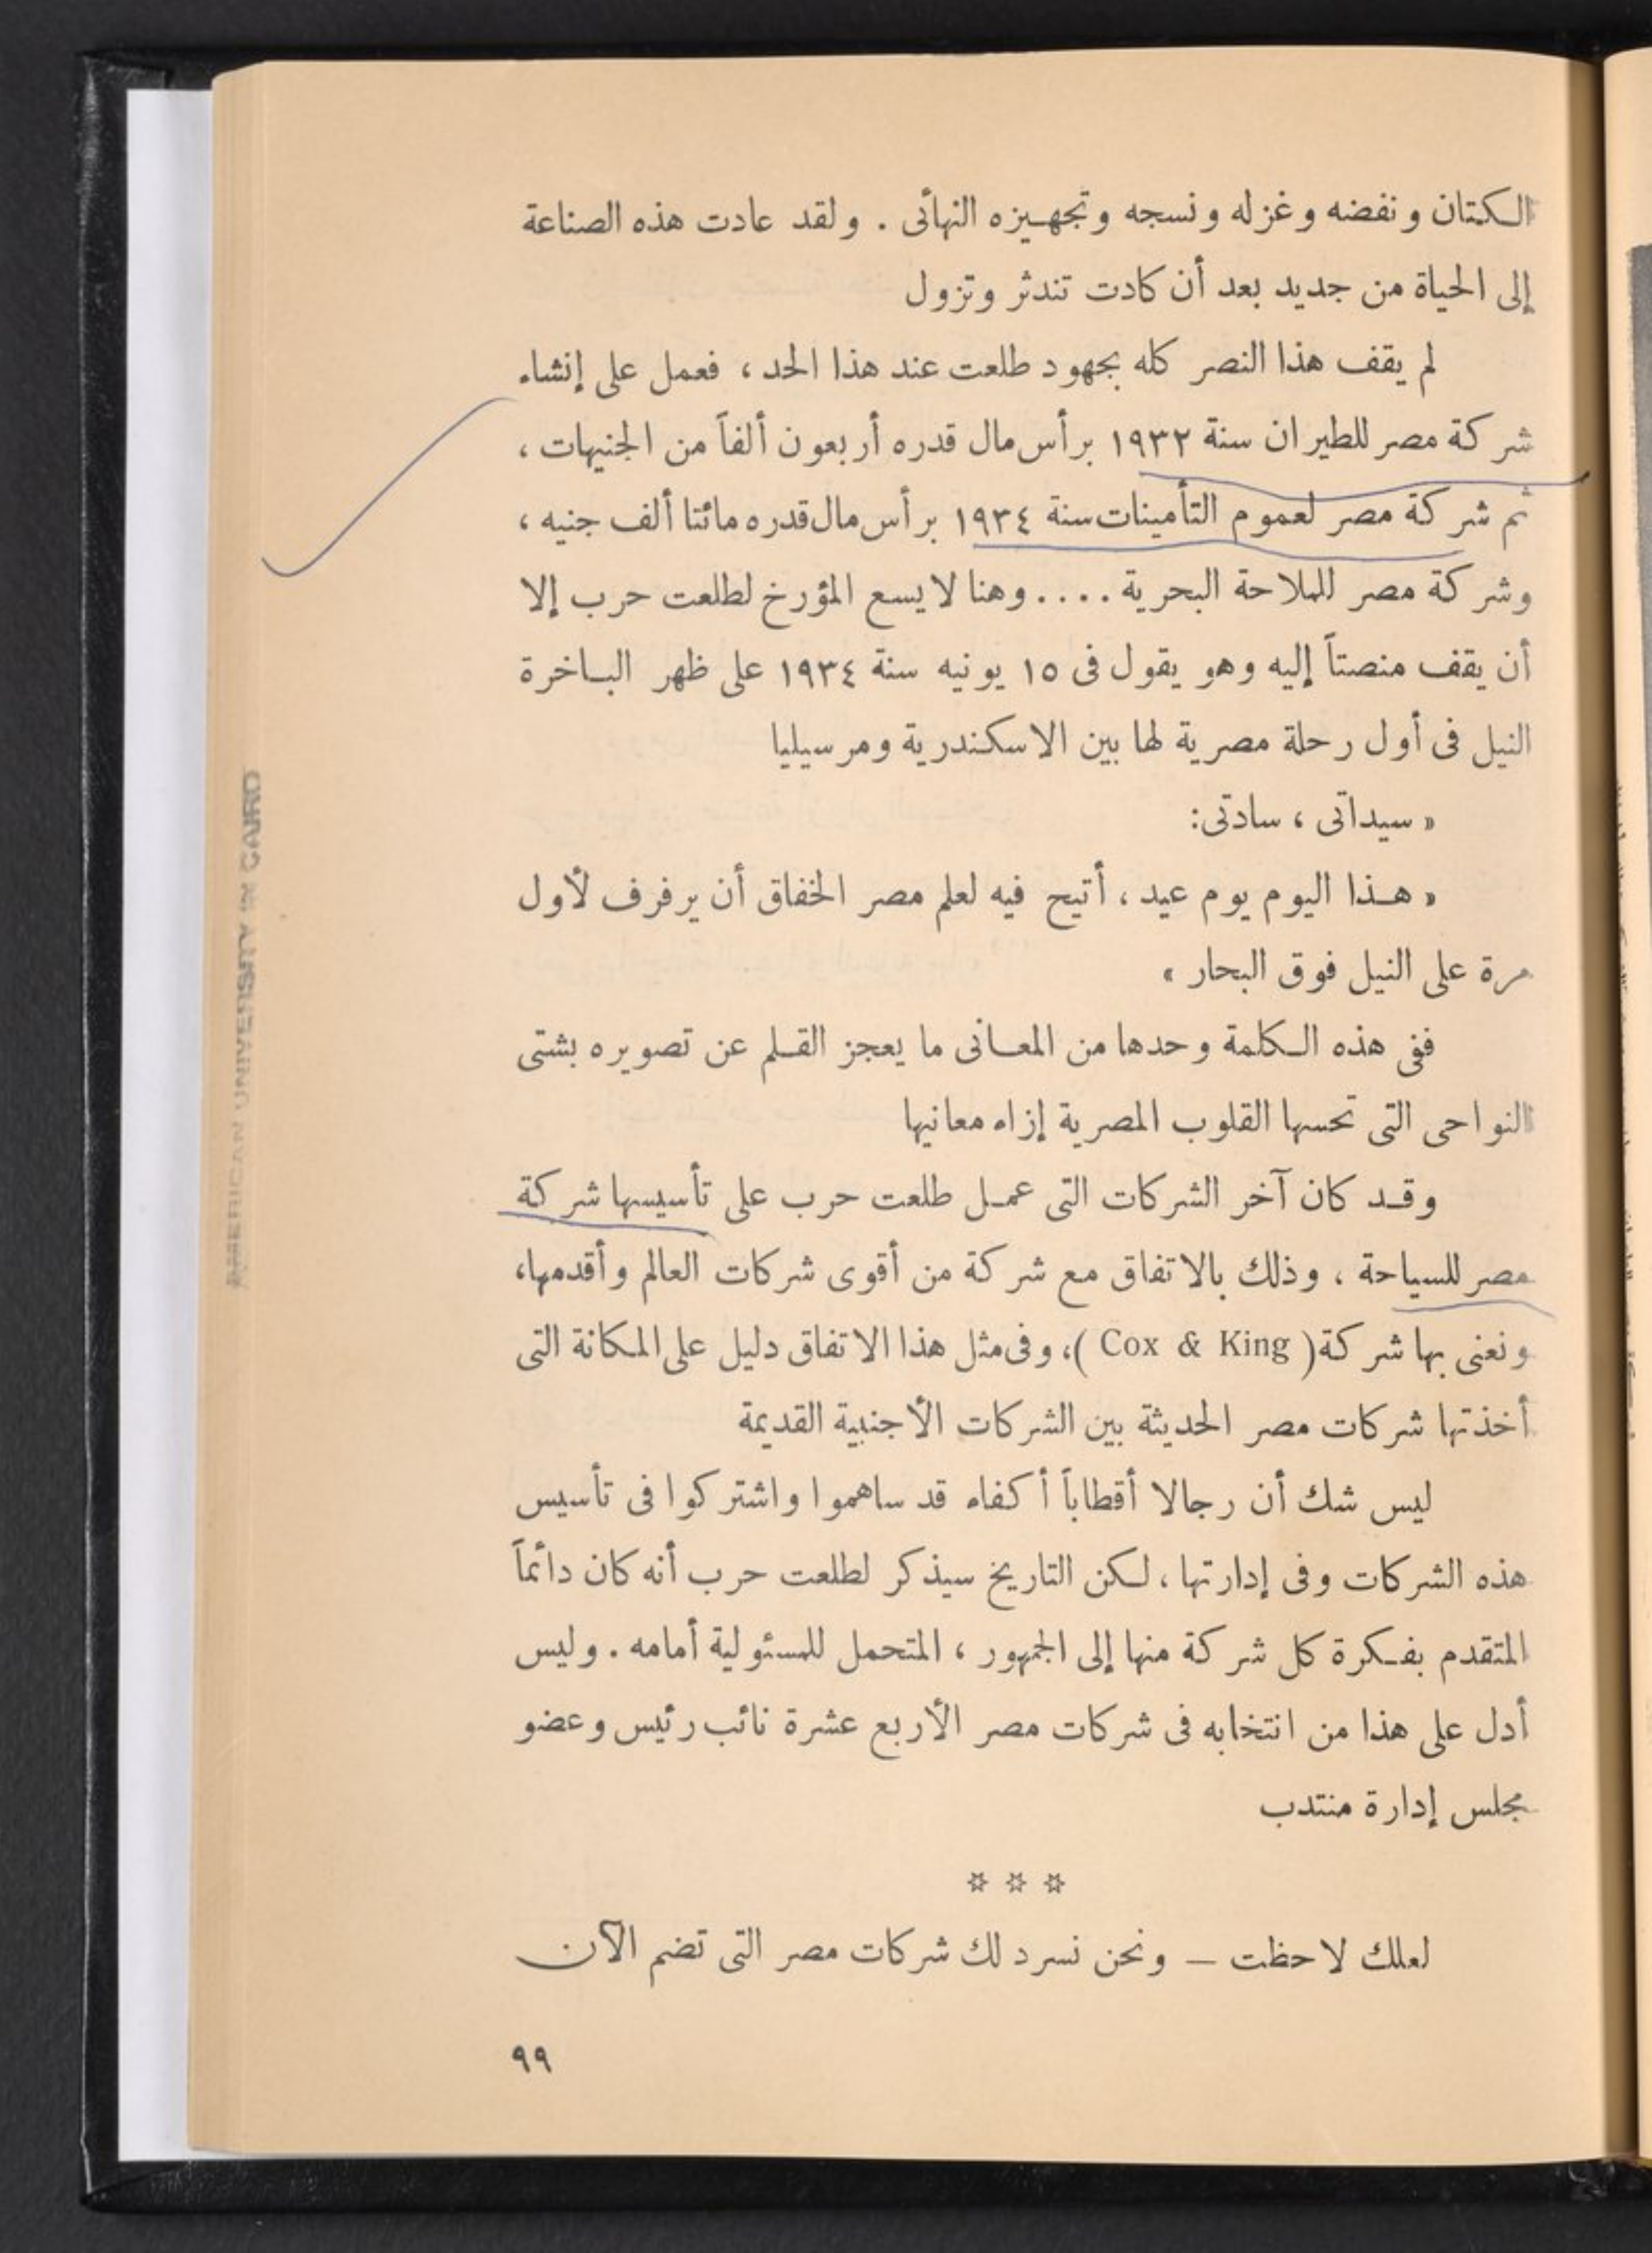 الكتان ونفضه وغزله ونسجه وتجهيزه النهائى . ولقد عادت هذه الصناعة
إلى الحياة من جديد بعد أن كادت تندثر وتزول
لم يقف هذا النصر كله بجهود طلعت عند هذا الحد ، فعمل على إنشاء
شركة مصر للطيران سنة ١٩٣٢ برأس مال قدره أربعون ألفاً من الجنيهات ،
ثم شركة مصر لعموم التأمينات سنة ١٩٣٤ برأس مال قدره مائتا ألف جنيه ،
وشركة مصر للملاحة البحرية .... وهنا لا يسع المؤرخ لطلعت حرب إلا
أن يقف منصتاً إليه وهو يقول فى ١٥ يونيه سنة ١٩٣٤ على ظهر الباخرة
النيل فى أول رحلة مصرية لها بين الاسكندرية ومرسيليا
« سيداتى ، سادتى:
« هذا اليوم يوم عيد ، أتيح فيه لعلم مصر الخفاق أن يرفرف لأول
مرة على النيل فوق البحار »
ففى هذه الكلمة وحدها من المعانى ما يعجز القلم عن تصويره بشتى
النواحى التى تحسها القلوب المصرية إزاء معانيها
وقد كان آخر الشركات التى عمل طلعت حرب على تأسيسها شركة
مصر للسياحة ، وذلك بالاتفاق مع شركة من أقوى شركات العالم وأقدمها،
ونعنى بها شركة ( Cox & King )، وفى مثل هذا الاتفاق دليل على المكانة التى
أخذتها شركات مصر الحديثة بين الشركات الأجنبية القديمة
ليس شك أن رجالا أقطاباً أكفاء قد ساهموا واشتركوا فى تأسيس
هذه الشركات وفى إدارتها ، لكن التاريخ سيذكر لطلعت حرب أنه كان دائماً
المتقدم بفكرة كل شركة منها إلى الجمهور ، المتحمل للمسئولية أمامه . وليس
أدل على هذا من انتخابه فى شركات مصر الأربع عشرة نائب رئيس وعضو
مجلس إدارة منتدب
* * *
لعلك لاحظت – ونحن نسرد لك شركات مصر التى تضم الآن
٩٩
AMERICAN UNIVERSITY IN CAIRO